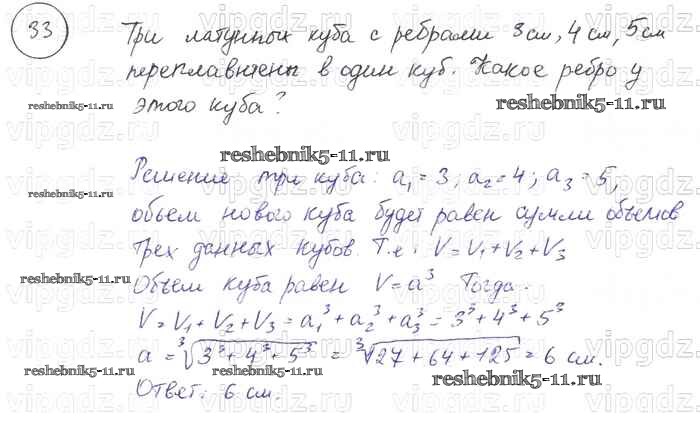 33
Три латунных куба с ребрами 3 см, 4 см, 5 см
переплавлены в один куб. Какое ребро у
этого куба?
reshebnik5-11.ru reshebnik5-11.ru
reshebnik5-11.ru
Решение три куба: a₁ = 3, a₂ = 4; a₃ = 5,
reshebnik5-11.ru
объем нового куба будет равен сумме объемов
трех данных кубов. Т.е. V = V₁ + V₂ + V₃
reshebnik5-11.ru
Объем куба равен V = a³ Тогда.
V = V₁ + V₂ + V₃ = a₁³ + a₂³ + a₃³ = 3³ + 4³ + 5³
a = ∛(3³ + 4³ + 5³) = ∛(27 + 64 + 125) = 6 см.
reshebnik5-11.ru reshebnik5-11.ru
Ответ: 6 см.
vipgdz.ru